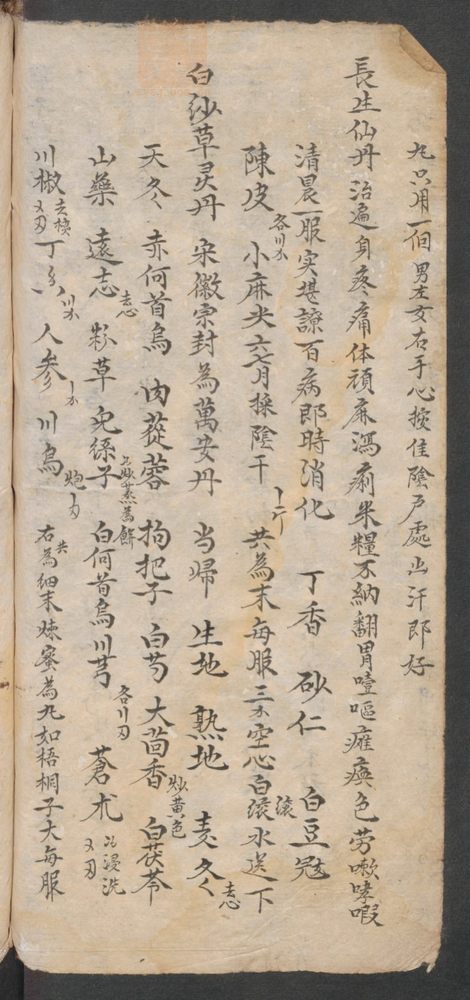 丸只用一佰男左女右手心按住陰户處出汗即好
長生仙丹 治遍身疼痛体頑麻瀉痢米糧不納翻胃噎嘔瘫痪色劳嗽哮暇
清晨一服实堪諒百病即時消化 丁香 砂仁 白豆冠
陳皮 各川 小麻夫六七月採陰干 共為末每服三 空心白滚水送下
白纱草灵丹 宋徽宗封為萬安丹 当帰 生地 熟地 麦冬 去心
天冬 赤何首烏 肉蓯蓉 拘把子 白芍 大茴香 炒黄色 白茯苓
山藥 遠志 去心 粉草 兔絲子 炒蒸為餅 白何首烏 川芎 各 蒼朮 浸洗
川椒 去梗 丁香 人参 川烏 炮 右共為細末煉蜜為丸如梧桐子大每服